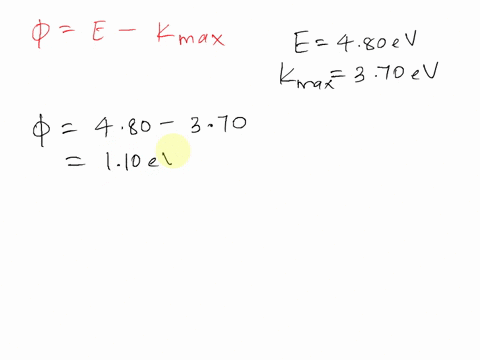 ϕ = E − Kmax
E = 4.80 eV
Kmax = 3.70 eV
ϕ = 4.80 − 3.70
= 1.10 eV